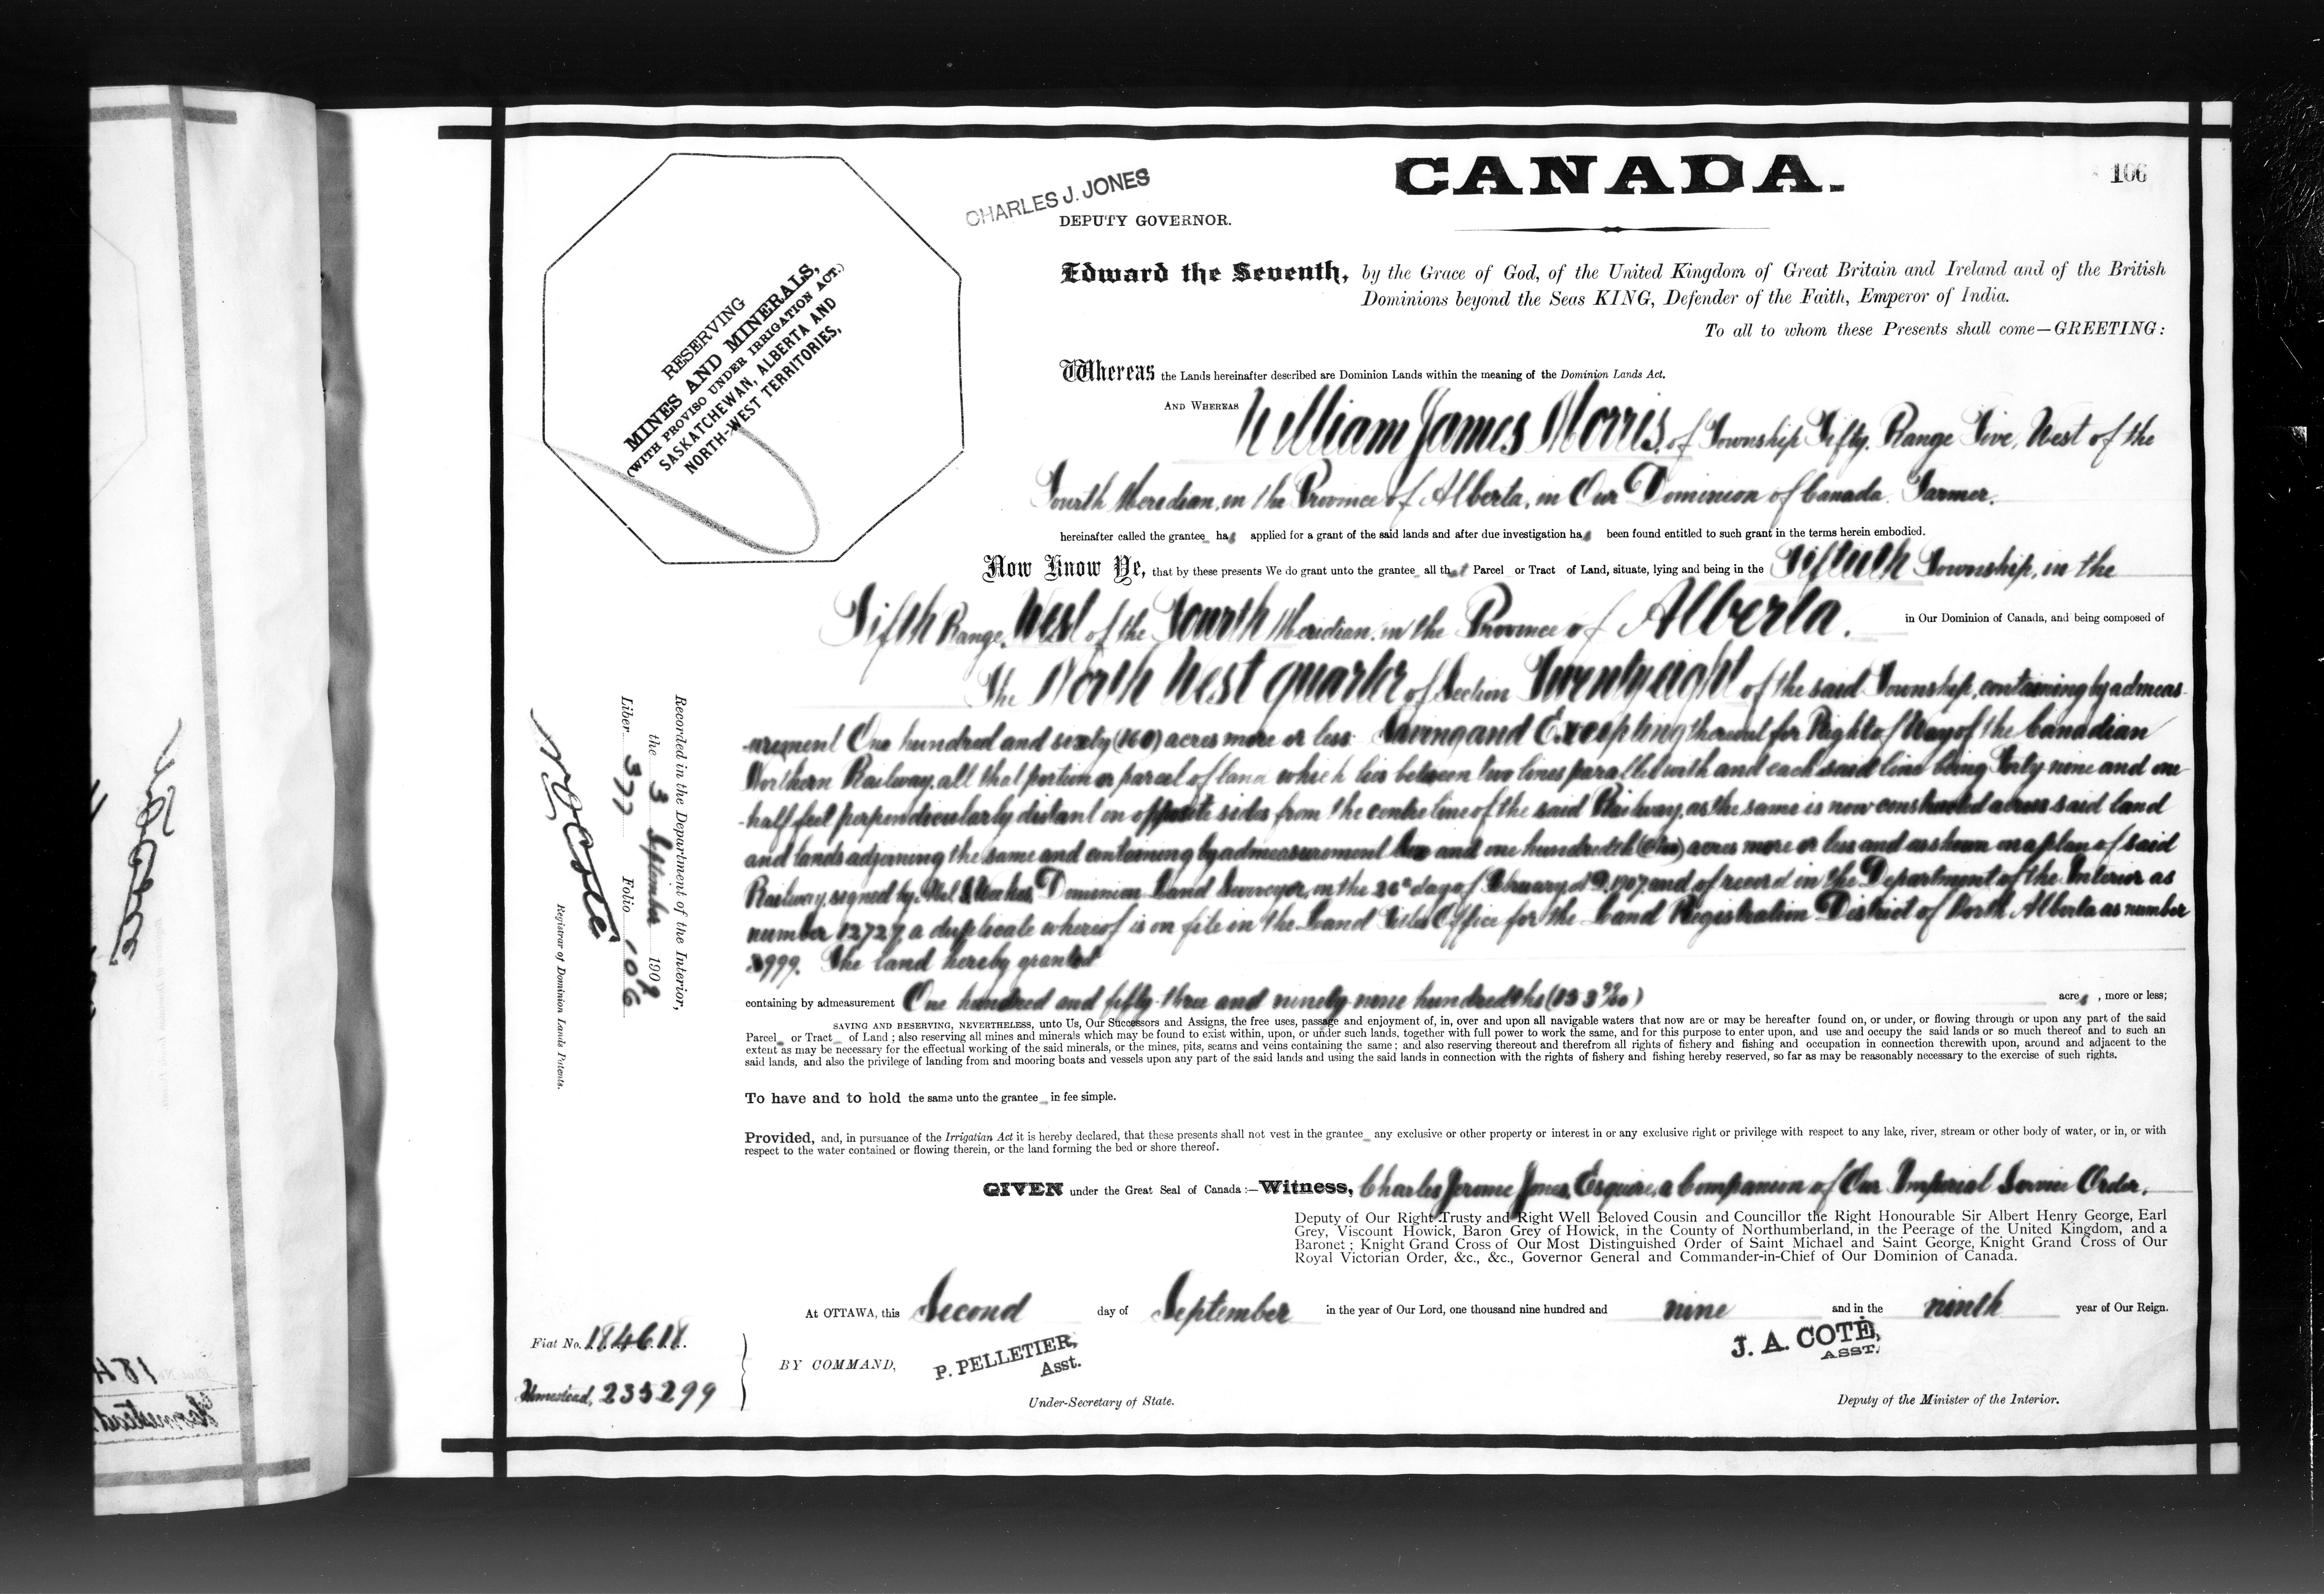 CANADA.
106
CHARLES J. JONES
DEPUTY GOVERNOR.
RESERVING
MINES AND MINERALS,
(WITH PROVISO UNDER IRRIGATION ACT.)
SASKATCHEWAN, ALBERTA AND
NORTH-WEST TERRITORIES,
Edward the Seventh, by the Grace of God, of the United Kingdom of Great Britain and Ireland and of the British
Dominions beyond the Seas KING, Defender of the Faith, Emperor of India.
To all to whom these Presents shall come—GREETING:
Whereas the Lands hereinafter described are Dominion Lands within the meaning of the Dominion Lands Act.
AND WHEREAS William James Morris, of Township Fifty, Range Five, West of the
Fourth Meridian, in the Province of Alberta, in Our Dominion of Canada. Farmer.
hereinafter called the grantee has applied for a grant of the said lands and after due investigation has been found entitled to such grant in the terms herein embodied.
Now Know Ye, that by these presents We do grant unto the grantee all that Parcel or Tract of Land, situate, lying and being in the Fiftieth Township, in the
Fifth Range, West of the Fourth Meridian, in the Province of Alberta. in Our Dominion of Canada, and being composed of
The North West quarter of Section Twenty eight of the said Township, containing by admeas-
-urement One hundred and sixty (160) acres more or less. Saving and Excepting thereout for Right of Way of the Canadian
Northern Railway, all that portion or parcel of land which lies between two lines parallel with and each said line being Forty nine and one
-half feet perpendicularly distant on opposite sides from the centre line of the said Railway, as the same is now constructed across said land
and lands adjoining the same and containing by admeasurement and one hundredth acres more or less and as shown on a plan of said
Railway, signed by Dominion Land Surveyor, on the 26th day of February, A.D. 1907, and of record in the Department of the Interior as
number 12727, a duplicate whereof is on file in the Land Titles Office for the Land Registration District of North Alberta as number
999. The land hereby granted
containing by admeasurement One hundred and fifty-three and ninety-nine hundredths (153 99/100) acres, more or less;
SAVING AND RESERVING, NEVERTHELESS, unto Us, Our Successors and Assigns, the free uses, passage and enjoyment of, in, over and upon all navigable waters that now are or may be hereafter found on, or under, or flowing through or upon any part of the said
Parcel or Tract of Land; also reserving all mines and minerals which may be found to exist within, upon, or under such lands, together with full power to work the same, and for this purpose to enter upon, and use and occupy the said lands or so much thereof and to such an
extent as may be necessary for the effectual working of the said minerals, or the mines, pits, seams and veins containing the same; and also reserving thereout and therefrom all rights of fishery and fishing and occupation in connection therewith upon, around and adjacent to the
said lands, and also the privilege of landing from and mooring boats and vessels upon any part of the said lands and using the said lands in connection with the rights of fishery and fishing hereby reserved, so far as may be reasonably necessary to the exercise of such rights.
To have and to hold the same unto the grantee in fee simple.
Provided, and, in pursuance of the Irrigatian Act it is hereby declared, that these presents shall not vest in the grantee any exclusive or other property or interest in or any exclusive right or privilege with respect to any lake, river, stream or other body of water, or in, or with
respect to the water contained or flowing therein, or the land forming the bed or shore thereof.
GIVEN under the Great Seal of Canada:—Witness, Charles Jerome Jones, Esquire, a Companion of Our Imperial Service Order,
Deputy of Our Right Trusty and Right Well Beloved Cousin and Councillor the Right Honourable Sir Albert Henry George, Earl
Grey, Viscount Howick, Baron Grey of Howick, in the County of Northumberland, in the Peerage of the United Kingdom, and a
Baronet; Knight Grand Cross of Our Most Distinguished Order of Saint Michael and Saint George, Knight Grand Cross of Our
Royal Victorian Order, &c., &c., Governor General and Commander-in-Chief of Our Dominion of Canada.
At OTTAWA, this Second day of September in the year of Our Lord, one thousand nine hundred and nine and in the ninth year of Our Reign.
BY COMMAND,
P. PELLETIER,
Asst.
Under-Secretary of State.
J. A. COTÉ,
ASST.
Deputy of the Minister of the Interior.
Fiat No. 184618.
Homestead, 235299
Recorded in the Department of the Interior,
the 3 September 1909
Liber 377 Folio 106
N O Coté
Registrar of Dominion Lands Patents.